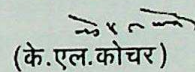 (के.एल.कोचर)